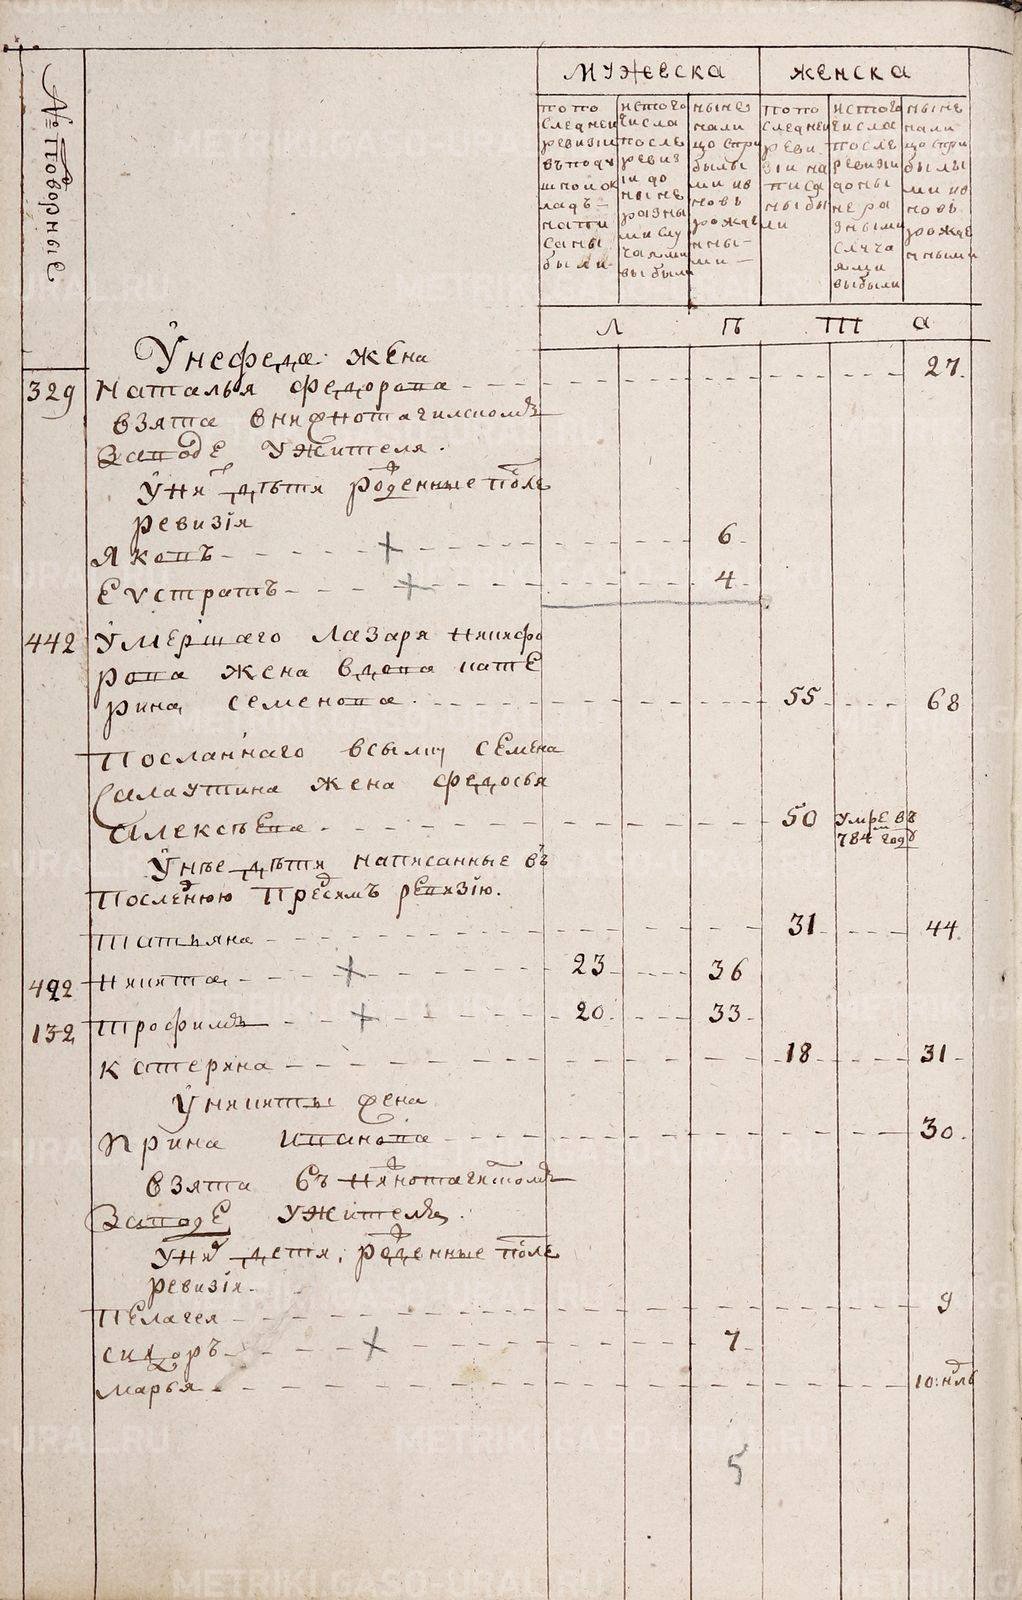 МУЖЕВСКА
ЖЕНСКА
№ Поворные
по по
следнеи
ревизии
въ поду
шной ок
ладъ
напи
саны
были
ис того
числа
после
ревиз
іи до
ныне
разны
ми слу
чаями
выбыли
ныне
нали
цо спри
былы
ми и в
новь
рожде
нны
ми
по по
следнеи
реви
зіи на
писа
ны бы
ли
ис того
числа
после
ревизіи
до ны
не ра
зными
случа
ями
выбыли
ныне
нали
цо спри
былы
ми и в
новь
рожде
нными
Л Ѣ Т а
У нефеда жена
329 Наталья федорова 27
взята внижнотагилскомъ
Заводе у жителя.
У них дѣти рожденные после
ревизіи
Яковъ 6
Еvстратъ 4
442 Умершаго Лазаря Никифо
рова жена вдова кате
рина семенова 55 68
Посланнаго всылку семена
Салаутина жена федосья
Алексѣева 50 умре въ
784м году
У нее дѣти написанные въ
последнюю пред симъ ревизію.
Татьяна 31 44
492 Никита 23 36
132 Трофимъ 20 33
Катерина 18 31
У никиты жена
Ирина Иванова 30
взята въ нижнотагилскомъ
Заводе у жителя.
У них дети, рожденные после
ревизіи
Пелагея 9
сидоръ 7
марья 10: нѣдль
5
METRIKI.GASO-URAL.RU